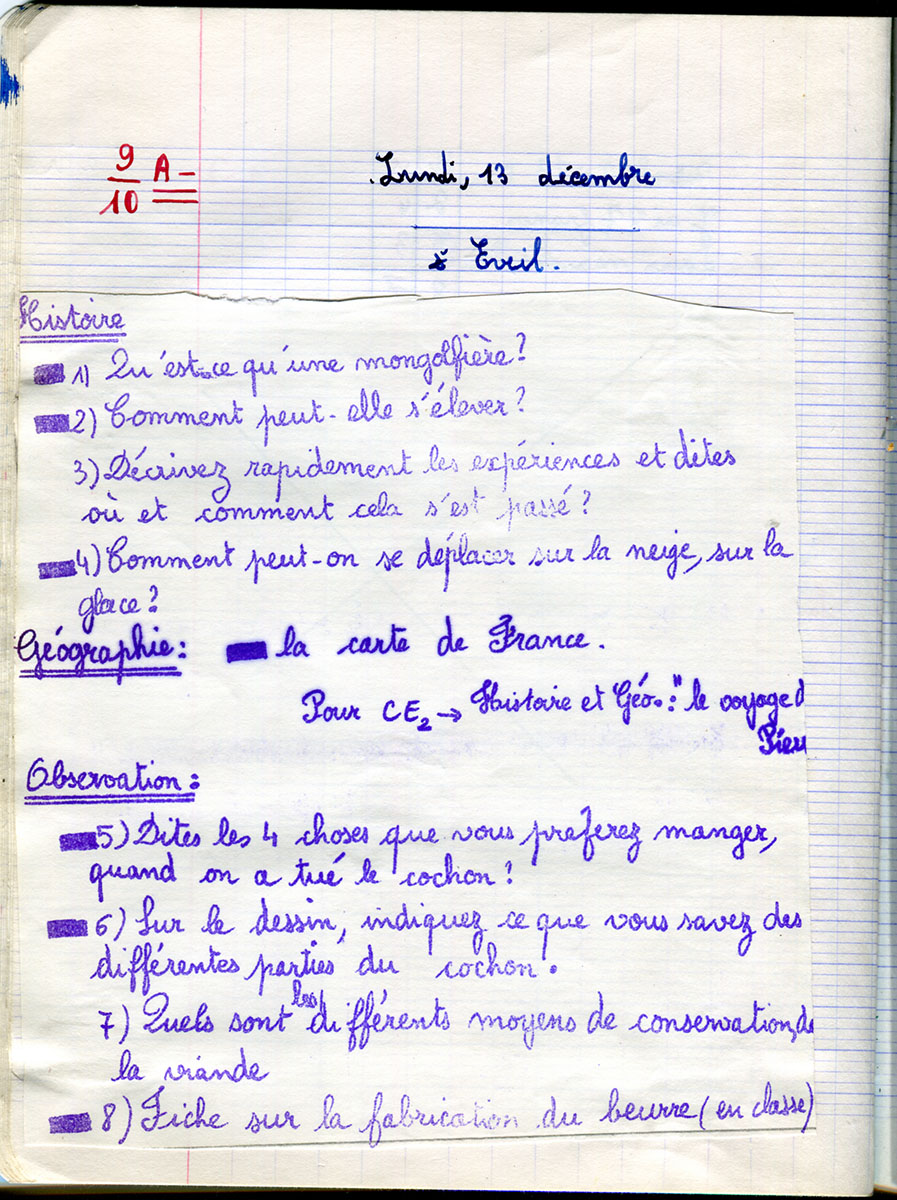 9/10 A-
Lundi, 13 décembre
Eveil.
Histoire
1) Qu'est-ce qu'une mongolfière?
2) Comment peut-elle s'élever?
3) Décrivez rapidement les expériences et dites
où et comment cela s'est passé?
4) Comment peut-on se déplacer sur la neige, sur la
glace?
Géographie: la carte de France.
Pour CE2 → Histoire et Géo.: "le voyage d
Pier
Observation:
5) Dites les 4 choses que vous préferez manger,
quand on a tué le cochon?
6) Sur le dessin, indiquez ce que vous savez des
différentes parties du cochon.
7) Quels sont les différents moyens de conservation de
la viande
8) Fiche sur la fabrication du beurre (en classe)